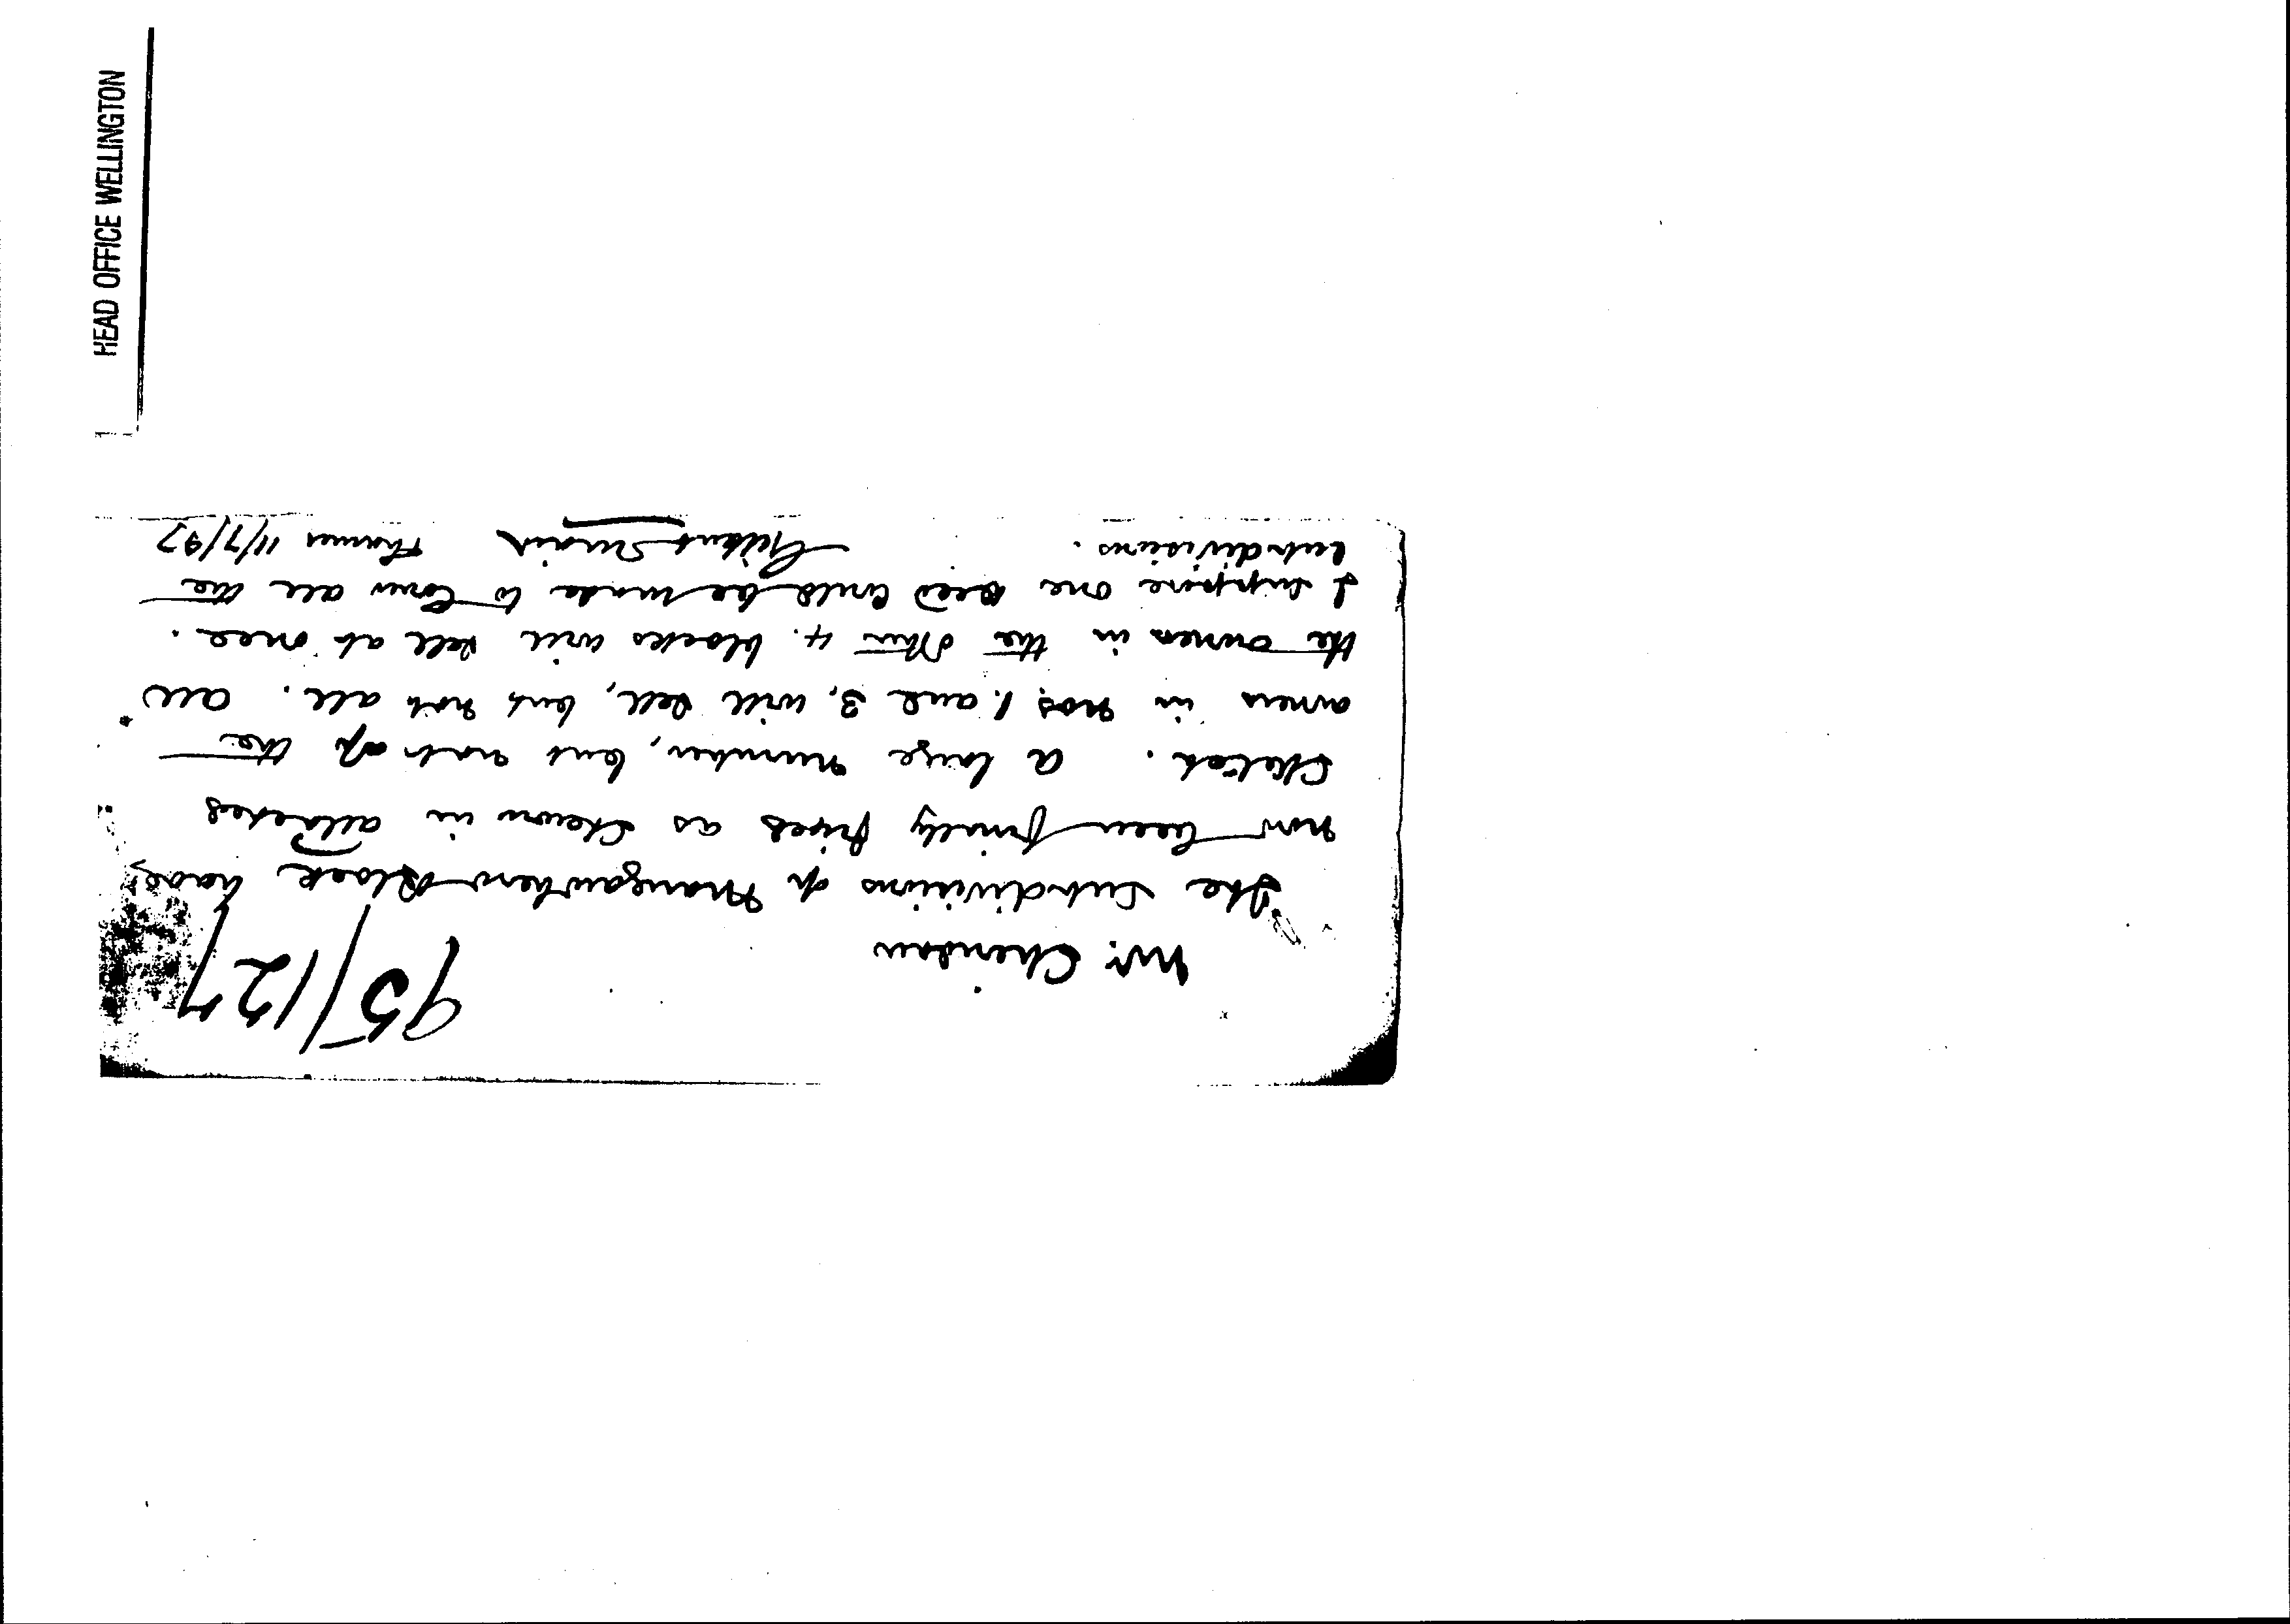 HEAD OFFICE WELLINGTON
95/127
Mr. Sheridan
The Subdivisions of Mangawhero Block have
now been finally fixed as shewn in attached
Sketch. A large number, but not of the
owners in Nos, 1. and 3, will sell, but not all. All
the owners in the other 4. blocks will sell at once.
I suppose one deed could be made to cover all the
Subdivisions.
Gilbert Mair Thames 11/7/97